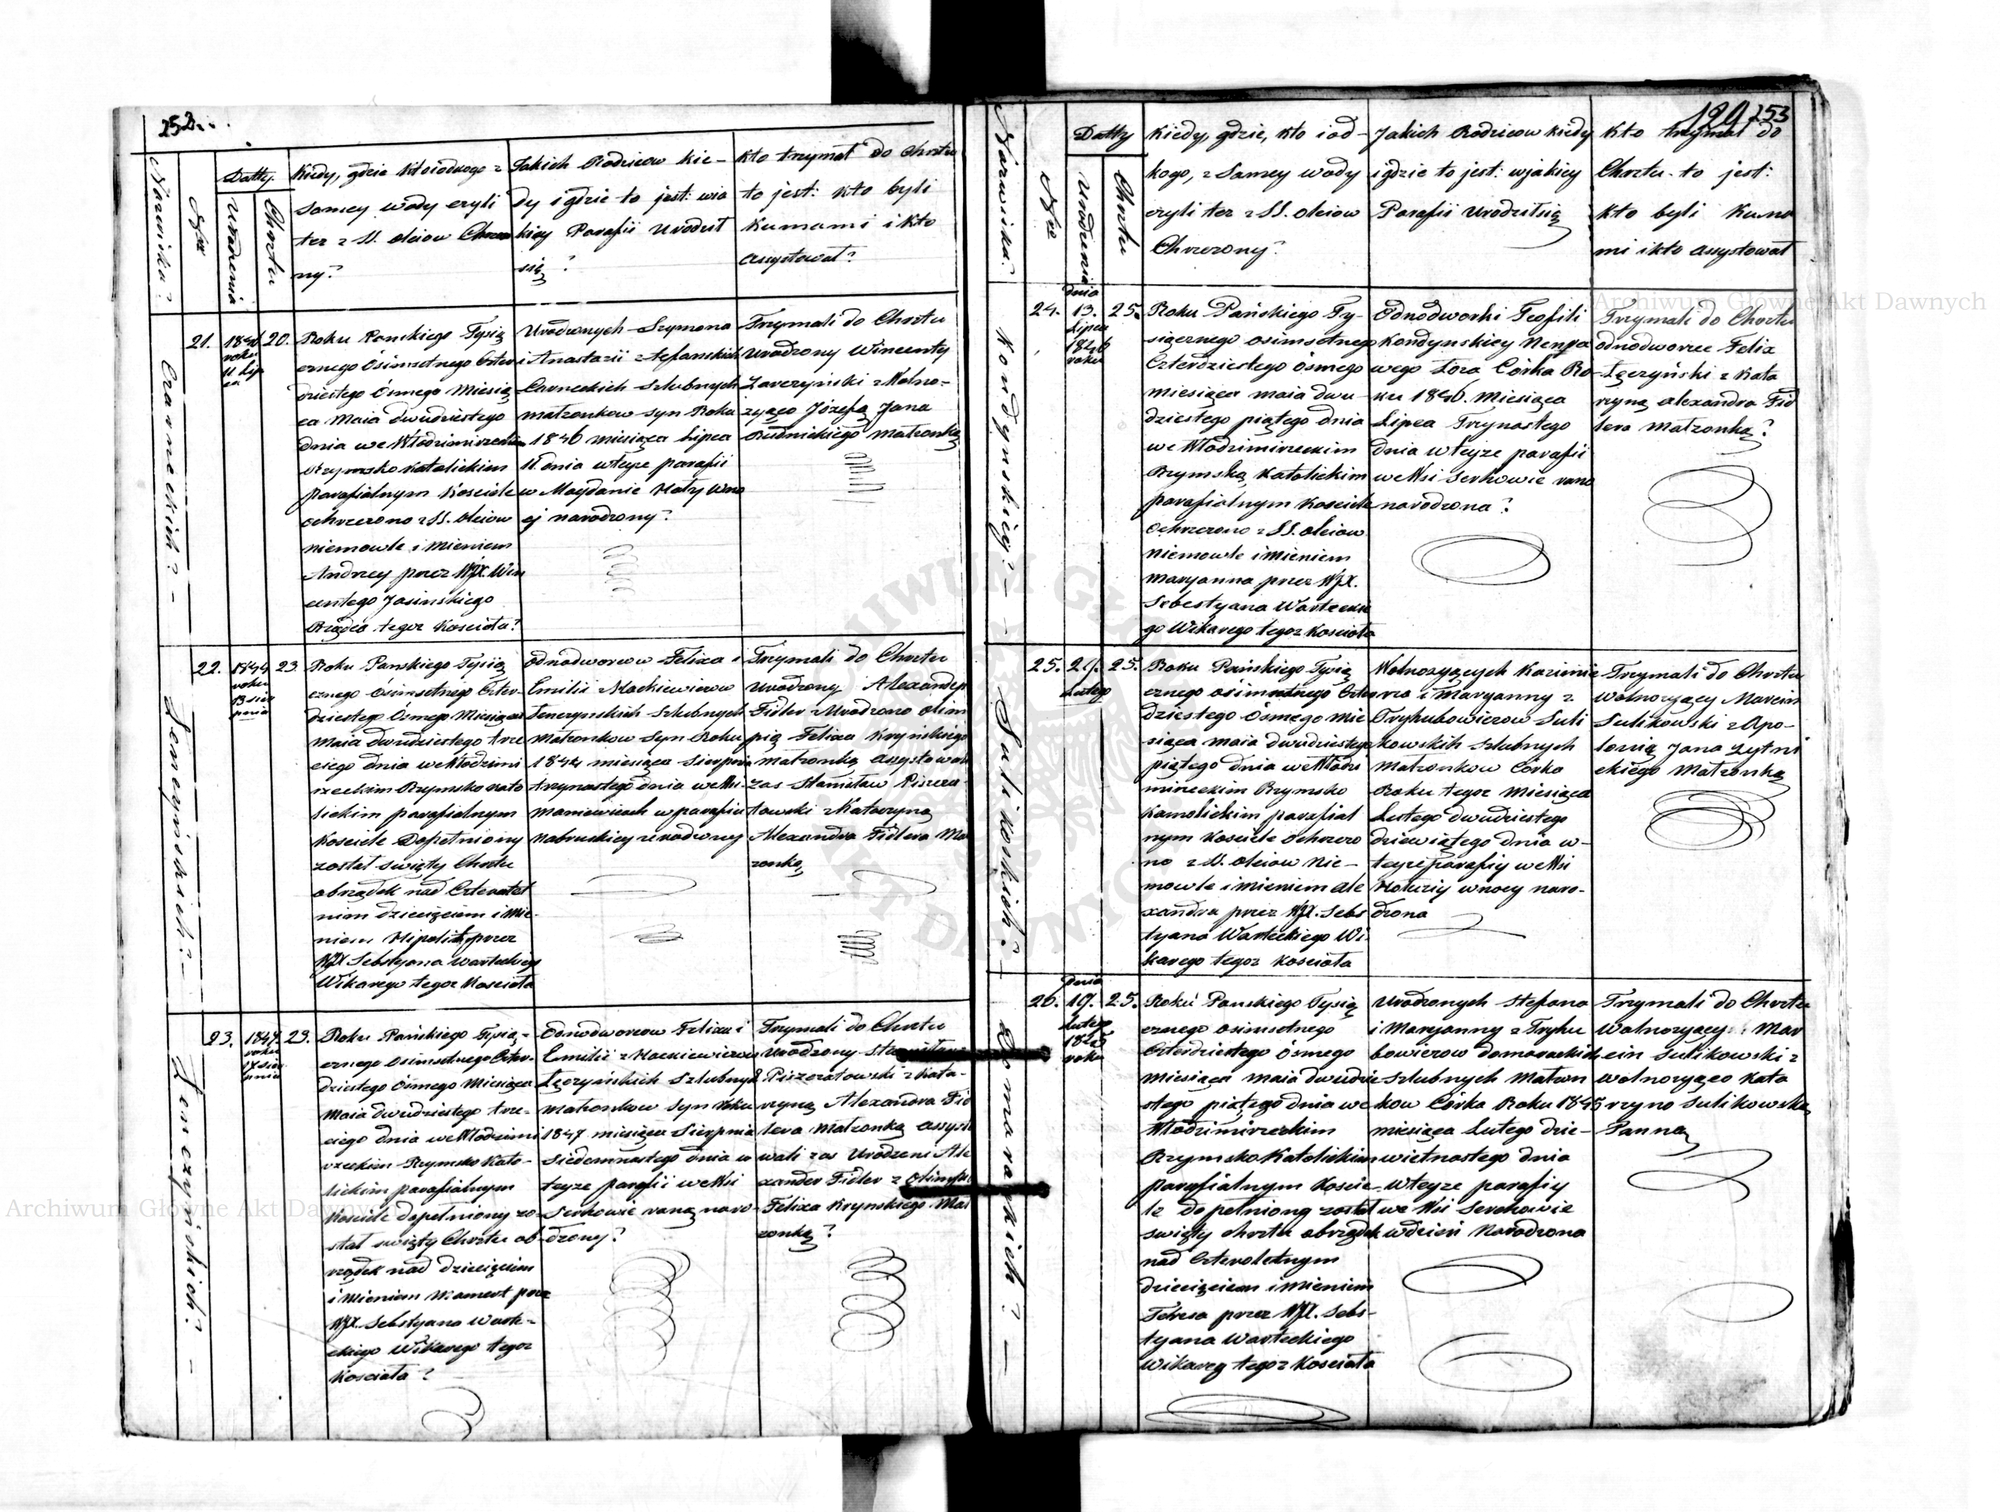 252.
Nazwiska?
Nro
Datty.
Urodzenia
Chrztu
Kiedy, gdzie kto i od kogo z
samey wody czyli
też z SS. oleiow Chrzczo
ny?
Jakich Rodzicow kie-
dy i gdzie to jest: w ja
kiey Parafii Urodził
się?
Kto trzymał do Chrztu
to jest: kto byli
Kumami i kto
assystował?
Czarneckich? -
21.
20.
Roku Panskiego Tysią
cznego Osimsetnego Czter
dziestego Ósmego Miesią
ca Maia dwudziestego
dnia we Włodzimirzeckim
Rzymsko Katolickim
parafialnym Kosciele
ochrzczono z SS. oleiow
niemowle imieniem
Andrzey przez WJX. Win
centego Jasinskiego
Rządcę tegoz Kosciola?
Urodzonych Szymona
i Anastazii z Stefanskich
Czarneckich Szlubnych
małzonkow syn Roku
1846 miesiąca Lipca
11 dnia w teyze parafii
w Maydanie
narodzony?
Trzymali do Chrztu
Urodzony Wincenty
Zawrzyński z Wolno-
zyąco Józefą Jana
Rudnickiego małzonką
22.
23
Roku Panskiego Tysią
cznego Osimsetnego Czter-
dziestego Osmego Miesiąca
Maia dwudziestego trze
ciego dnia we Włodzimi
rzeckim Rzymsko kato
lickim parafialnym
Kosciele Dopełniony
został swięty Chrztu
obrządek nad Czteroletnim
dziecięciem imie-
niem Hipolit przez
WJX Sebstyana Warteckiego
Wikarego tegoz Kosciola
Odnodworcow Felixa i
Emilii z Mackiewiczow
Szlubnych
Matzonkow syn Roku
1844 miesiąca Sierpnia
trzynastego dnia we Wsi
w parafii
urodzony
Trzymali do Chrztu
Urodzony Alexander
Fidler z Urodzoną Olim
pią Felixa Krynskiego
matzonką assystowali
zas Stanisław Piszcza
towski z Katarzyną
Alexandra Fidlera Ma
zonką
23.
1847
roku
23.
Roku Panskiego Tysią-
cznego Osimsetnego Czter-
dziestego Osmego Miesiąca
Maia dwudziestego trze-
ciego dnia we Włodzimi
rzeckim Rzymsko Kato-
lickim parafialnym
Kosciele dopełniony zo-
stał swięty Chrztu ob-
rządek nad dziecięciem
imieniem Mamert przez
WJX. Sebstyana Wart-
eckiego Wikarego tegoz
Kosciola?
Odnodworcow Felixa i
Emilii z Mackiewiczow
Łęczyńskich Szlubnych
Matzonkow syn Roku
1847 miesiąca Sierpnia
Siedemnastego dnia w
teyze parafii we Wsi
Serhowie rano naro-
dzony?
Trzymali do Chrztu
Urodzony Stanisław
Piszczatowski z Kata-
rzyną Alexandra Fid
lera Matzonką assysto
wali zas Urodzeni Ale
xander Fidler z Olimpią
Felixa Krynskiego Mat
zonką?
129
253
Nazwiska?
Nro
Datty
Urodzenia
Chrztu
Kiedy, gdzie, kto i od-
kogo, z Samey wody
czyli tez z SS. oleiow
Chrzczony?
Jakich Rodzicow kiedy
i gdzie to jest: w jakiey
Parafii Urodził się
Kto trzymał do
Chrztu to jest:
kto byli Kuma
mi i kto assystował
Kondynskiey? -
24.
dnia
13.
Lipca
1846
roku
25.
Roku Pańskiego Ty-
siącznego osimsetnego
Czterdziestego ósmego
miesiąca maia dwu-
dziestego piątego dnia
we Włodzimirzeckim
Rzymsko Katolickim
parafialnym Kosciele
Ochrzczono z SS. oleiow
niemowle imieniem
Maryanna przez WJX.
Sebestyana Wartecki
go Wikarego tegoz Kosciola
Odnodworki Teofili
Kondynskiey Niepra
wego Łoza Córka Ro-
ku 1846. Miesiąca
Lipca Trzynastego
dnia w teyze parafii
we Wsi Serhowie rano
narodzona?
Trzymali do Chrztu
odnodworzec Felix
Łęczyński z Kata
rzyną Alexandra Fid
lera Matzonką?
Sulikoskich? -
25.
29.
Lutego
25.
Roku Pańskiego Tysią
cznego osimsetnego Czter
dziestego Osmego Mie
siąca maia dwudziestego
piątego dnia we Włodzi
mirzeckim Rzymsko
Katolickim parafial
nym Kosciele ochrzczo
no z SS. oleiow nie-
mowle imieniem Ale
xandra przez WJX. Sebs
tyana Warteckiego Wi-
karego tegoz Kosciola
Wolnozyących Kazimie
rza i Maryanny z
Tryhubowiczow Suli
kowskich szlubnych
Matzonkow Córka
Roku tegoz Miesiąca
Lutego dwudziestego
dziewiątego dnia w-
teyze parafiy we Wsi
w nocy naro-
dzona
Trzymali do Chrztu
wolnozyący Marcin
Sulikowski z Apo-
lonią Jana Zytni
ckiego Matzonką
Domarackich? -
26.
dnia
19.
Lutego
roku
25.
Roku Panskiego Tysią
cznego osimsetnego
Czterdziestego ósmego
Miesiąca maia dwudzie
stego piątego dnia we
Włodzimirzeckim
Rzymsko Katolickim
parafialnym Koscie-
le dopełniony został
swięty chrztu obrządek
nad Czteroletnym
dziecięciem imieniem
Teresa przez WJX. Sebs-
tyana Warteckiego
Wikarego tegoz Kosciola
Urodzonych Stefana
i Maryanny z Tryhu
bowiczow Domarackich
szlubnych Matzon
kow Córka Roku 1845
miesiąca Lutego dzie-
wietnastego dnia
w teyze parafiy
we Wsi Serchowie
w dzień Narodzona
Trzymali do Chrztu
Wolnozyący: Mar
cin Sulikowski z
wolnozyąco Kata
rzyno Sulikowską
Panną
Archiwum Główne Akt Dawnych
Archiwum Główne Akt Dawnych